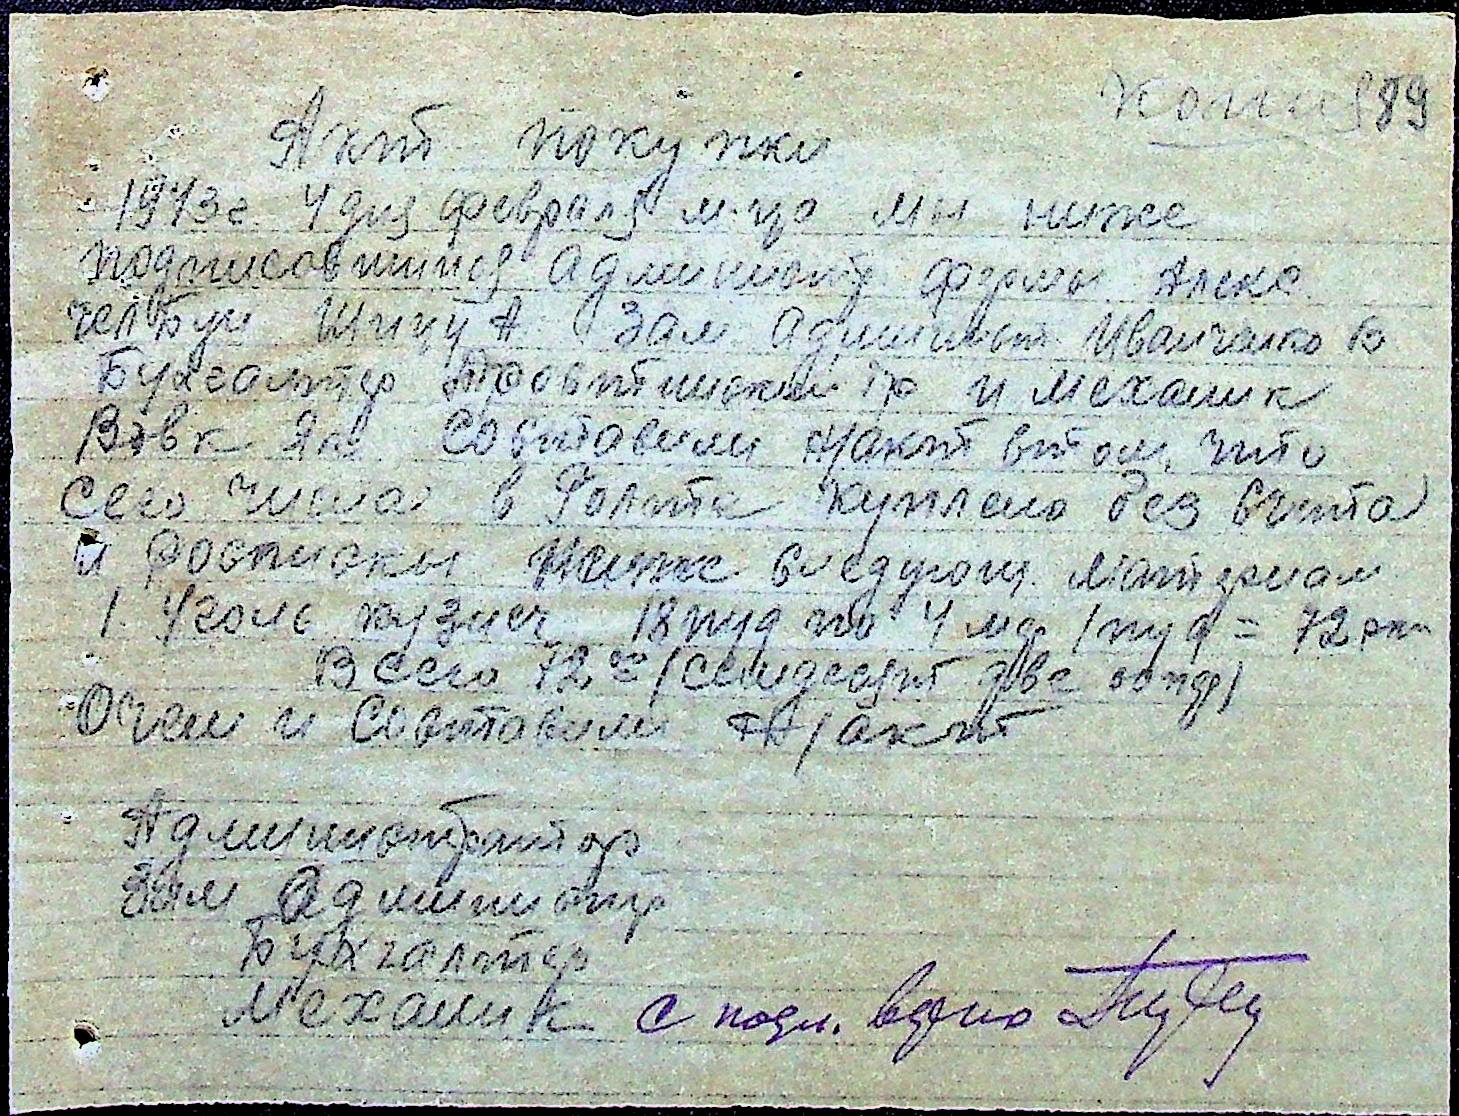 Копия 89
Акт покупки
1943 г. 4 дня февраля м-ца мы ниже
подписовшиися Администр. фермы Алекс.
челБуи Шицу А Зам Админист. Иванченко В
Бухгалтер Пр и Механик
Вовк Як составили н/акт втом, что
сего числа в куплено без счита
и росписки Ниже следующ. материал
1. Уголь кузнеч 18 пуд по 4 мр /пуд = 72
Всего 72 (семдесят две
Очем и составили Н/акт
Администратор
Зам Администр
Бухгалтер
Механик С подл. верно